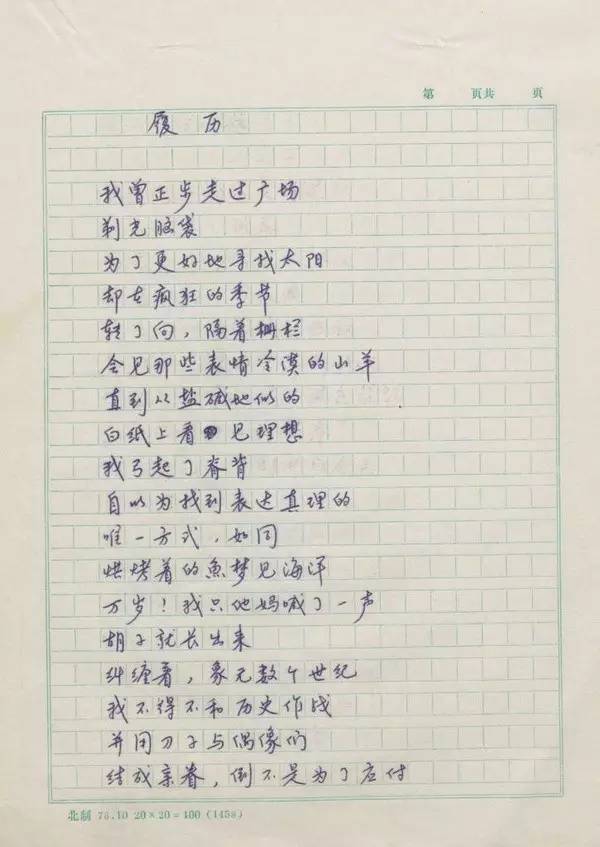 第 页共 页
履历
我曾正步走过广场
剃光脑袋
为了更好地寻找太阳
却在疯狂的季节
转了向，隔着栅栏
会见那些表情冷漠的山羊
直到从盐碱地似的
白纸上看见理想
我弓起了脊背
自以为找到表达真理的
唯一方式，如同
烘烤着的魚梦见海洋
万岁！我只他妈喊了一声
胡子就长出来
纠缠着，象无数个世纪
我不得不和历史作战
并用刀子与偶像们
结成亲眷，倒不是为了应付
北制 76.10 20×20=400 (1458)